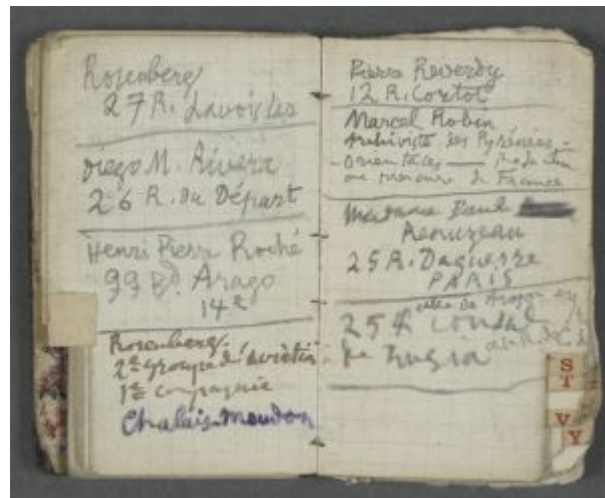 Rosenberg
27 R. Lavoisier
Diego M. Rivera
26 R. du Départ
Henri Pierre Roché
99 Bd. Arago
14e
Rosenberg.
2e groupe d'aviation
1e compagnie
Chalais-Meudon
Pierre Reverdy
12 R. Cortot
Marcel Robin
Archiviste des Pyrénées-
-Orientales
Mercure de France
Madame Paul
25 R. Daguerre
PARIS
25
de Rusia
S
T
V
Y